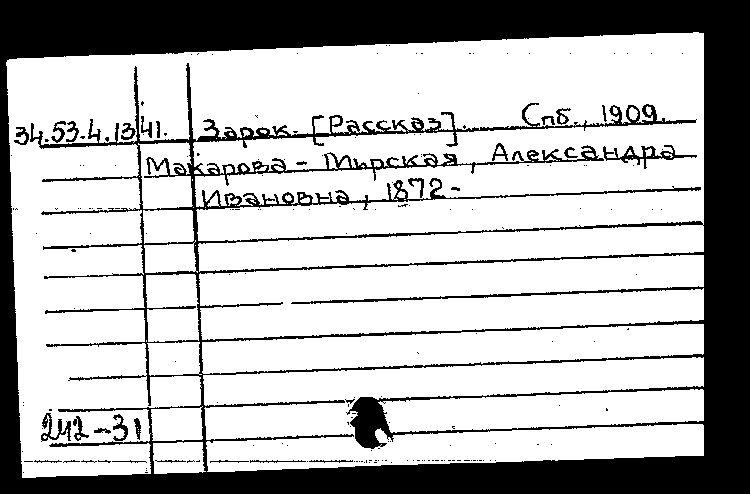 34.53.4.13 41. Зарок. [Рассказ]. Спб., 1909.
Макарова-Мирская, Александра
Ивановна, 1872-
242-31